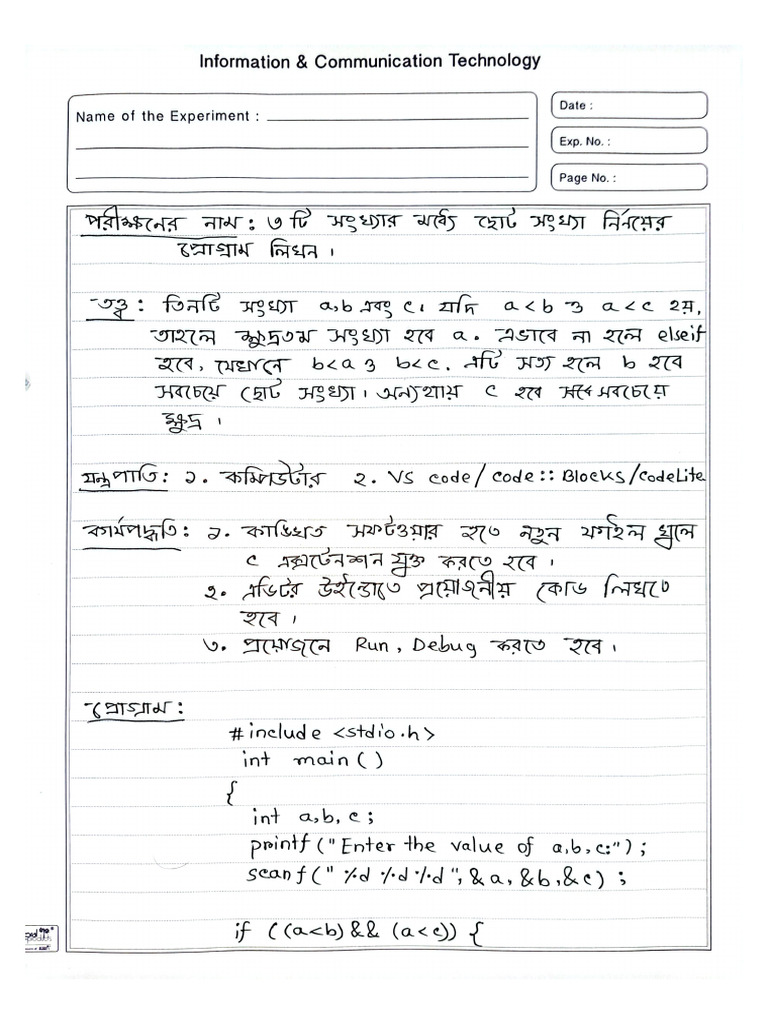 Information & Communication Technology
Name of the Experiment :
Date :
Exp. No. :
Page No. :
পরীক্ষনের নাম : ৩ টি সংখ্যার মধ্যে ছোট সংখ্যা নির্নয়ের
প্রোগ্রাম লিখন ।
তত্ত্ব : তিনটি সংখ্যা a,b এবং c। যদি a<b ও a<c হয়,
তাহলে ক্ষুদ্রতম সংখ্যা হবে a. এভাবে না হলে elseif
হবে, যেখানে b<a ও b<c. এটি সত্য হলে b হবে
সবচেয়ে ছোট সংখ্যা। অন্যথায় c হবে সবচেয়ে
ক্ষুদ্র ।
যন্ত্রপাতি : ১. কম্পিউটার ২. VS code/code::Blocks/CodeLite
কার্যপদ্ধতি : ১. কাঙিখত সফটওয়ার হতে নতুন ফাইল খুলে
c এক্সটেনশন যুক্ত করতে হবে ।
২. এডিটর উইন্ডোতে প্রয়োজনীয় কোড লিখতে
হবে ।
৩. প্রয়োজনে Run, Debug করতে হবে ।
প্রোগ্রাম :
#include <stdio.h>
int main()
{
int a,b,c;
printf("Enter the value of a,b,c:");
scanf("%d %d %d", &a, &b, &c);
if ((a<b) && (a<c)) {